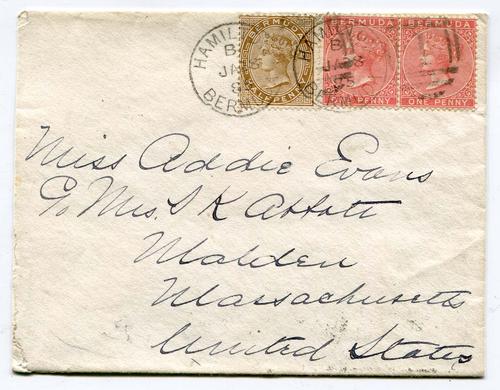 HAMILTON
B
JA 8
BERMUDA
BERMUDA
HALFPENNY
BERMUDA
ONE PENNY
BERMUDA
ONE PENNY
Miss Addie Evans
c/o Mrs. S K Abbott
Malden
Massachusetts
United States